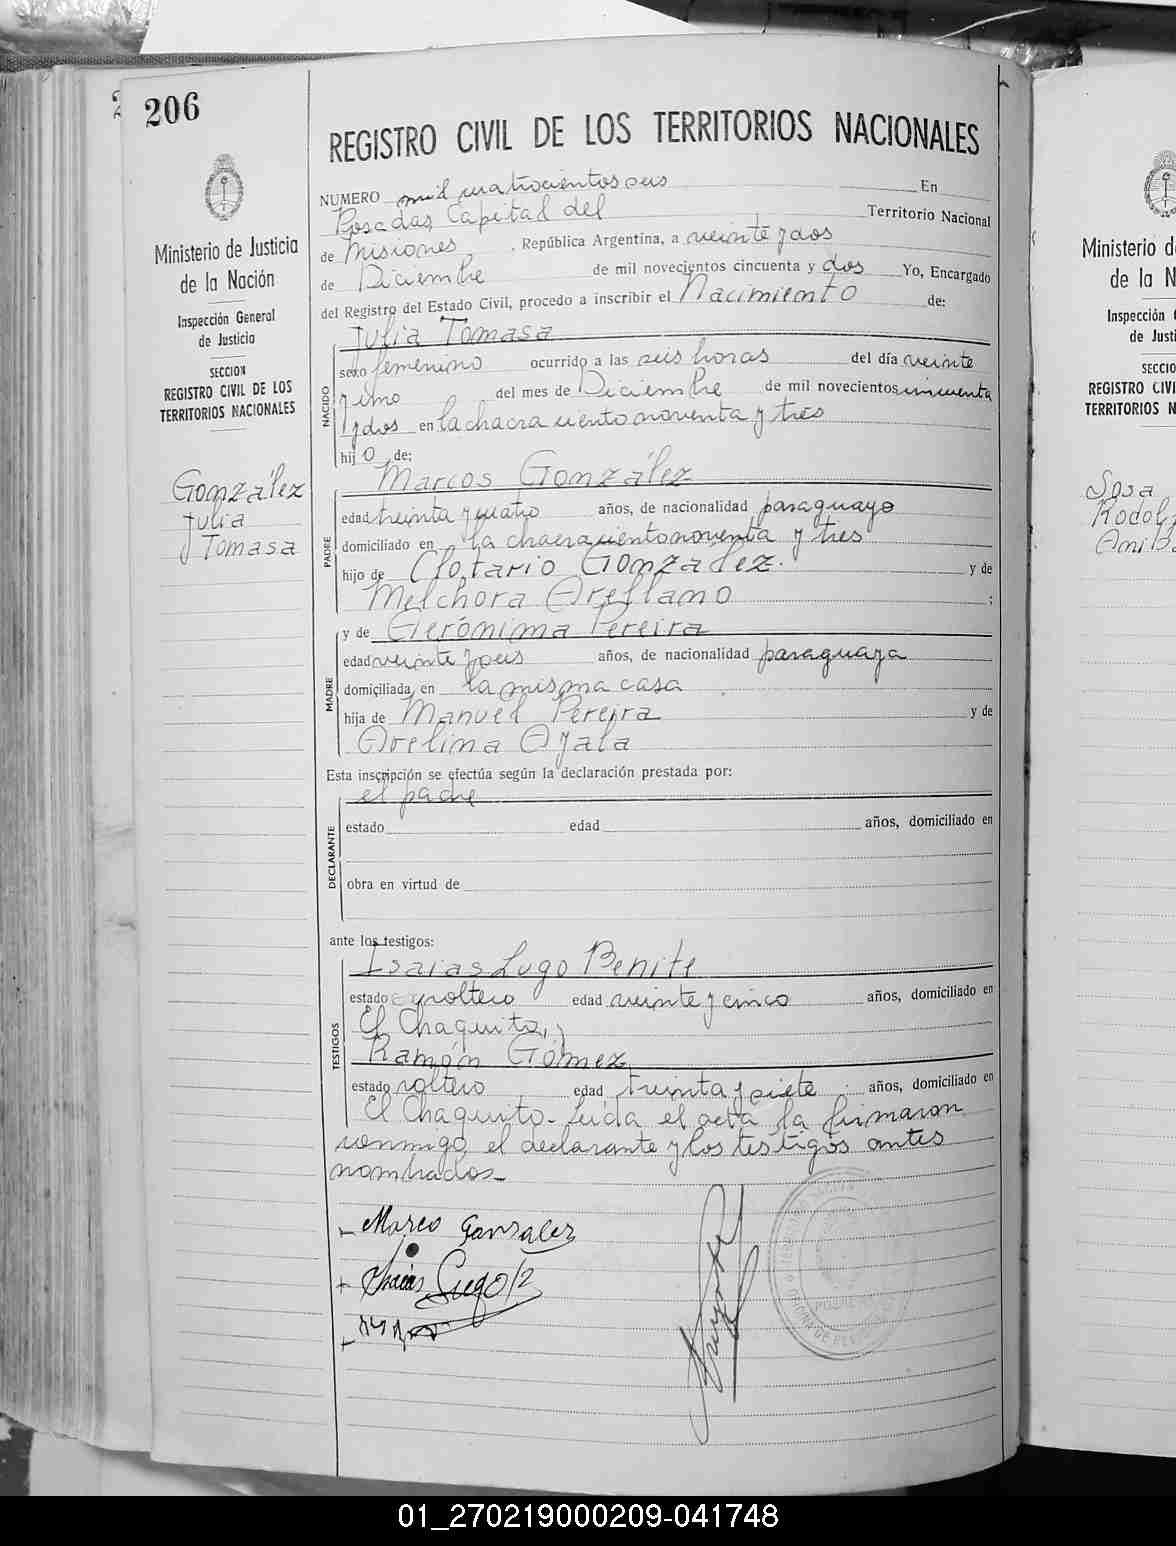 206
REGISTRO CIVIL DE LOS TERRITORIOS NACIONALES
Ministerio de Justicia
de la Nación
Inspección General
de Justicia
SECCION
REGISTRO CIVIL DE LOS
TERRITORIOS NACIONALES
González
Julia
Tomasa
NUMERO mil cuatrocientos seis En
Posadas, Capital del Territorio Nacional
de Misiones, República Argentina, a veinte y dos
de Diciembre de mil novecientos cincuenta y dos Yo, Encargado
del Registro del Estado Civil, procedo a inscribir el Nacimiento de:
Julia Tomasa
NACIDO
sexo femenino ocurrido a las seis horas del día veinte
y uno del mes de Diciembre de mil novecientos cincuenta
y dos en la chacra ciento noventa y tres
hijo de:
Marcos González
PADRE
edad treinta y cuatro años, de nacionalidad paraguayo
domiciliado en la chacra ciento noventa y tres
hijo de Clotario González. y de
Melchora Arellano ;
y de Gerónima Pereira
MADRE
edad veinte y seis años, de nacionalidad paraguaya
domiciliada en la misma casa
hija de Manuel Pereira y de
Avelina Ayala
Esta inscripción se efectúa según la declaración prestada por:
el padre
DECLARANTE
estado edad años, domiciliado en
obra en virtud de
ante los testigos:
Isaias Lugo Benite
TESTIGOS
estado soltero edad veinte y cinco años, domiciliado en
El Chaquito, y
Ramón Gómez
estado soltero edad treinta y siete años, domiciliado en
El Chaquito. Leída el acta la firmaron
conmigo, el declarante y los testigos antes
nombrados.
Marco Gonzalez
Isaias Lugo
Ministerio d
de la N
Inspección
de Justi
SECCIO
REGISTRO CIVI
TERRITORIOS N
Sosa
Rodol
01_270219000209-041748